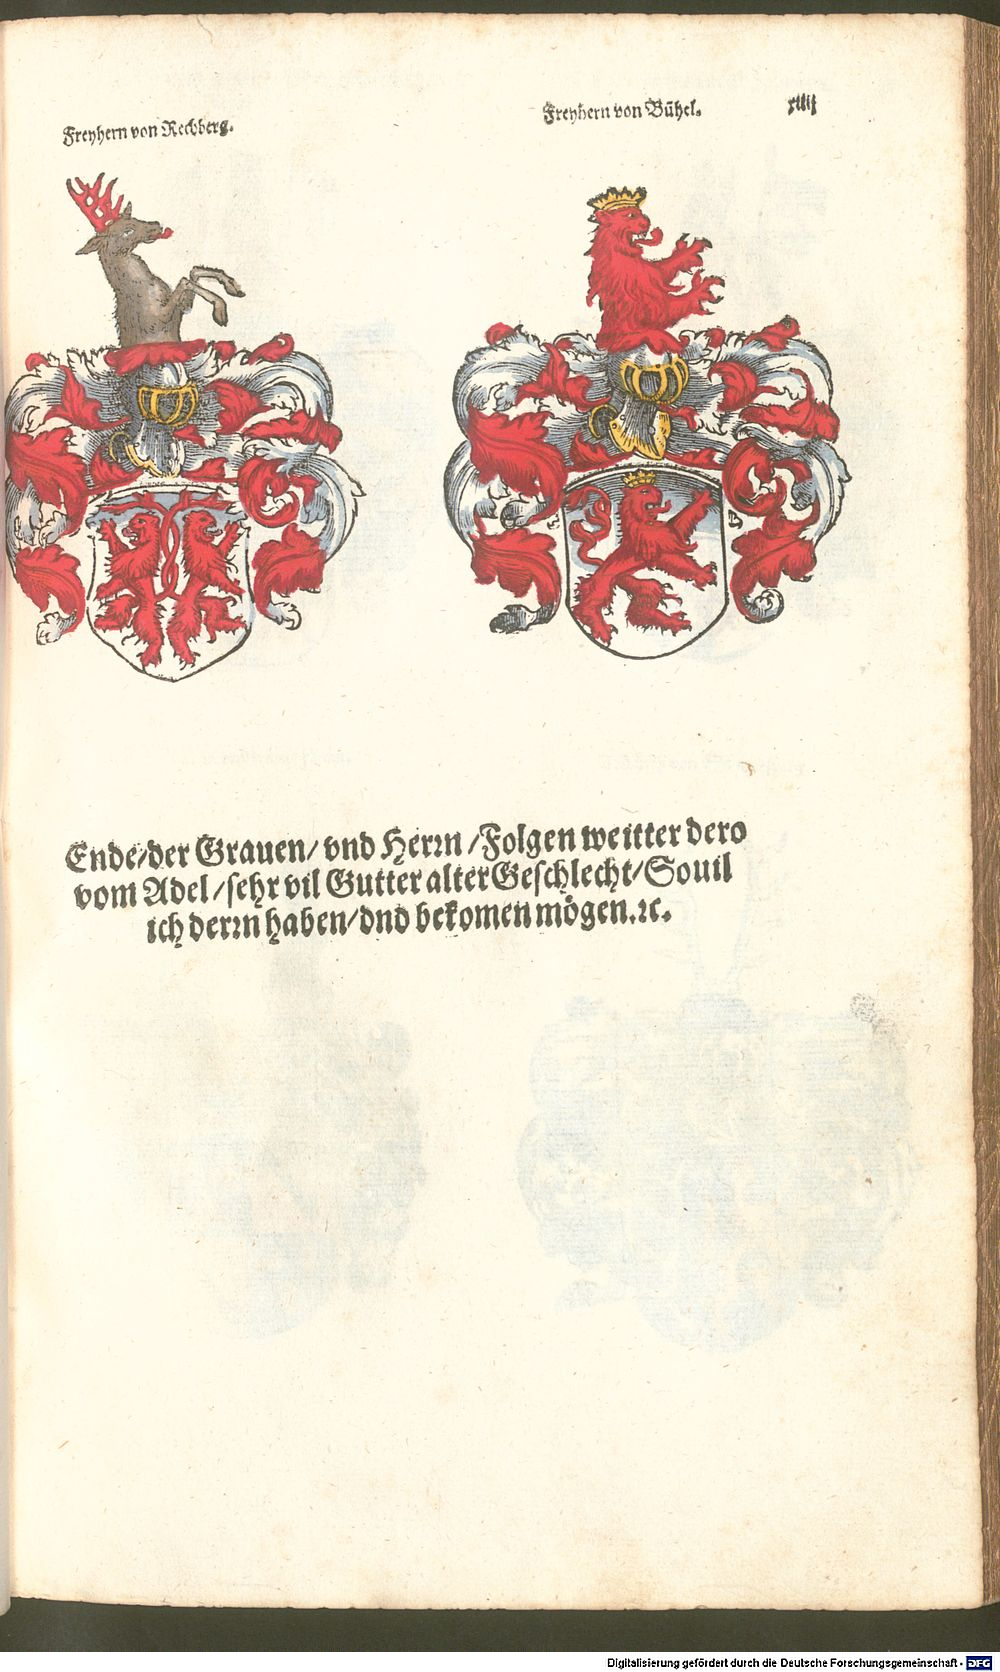 Freyhern von Rechberg.
Freyhern von Bühel.
xliij
Ende/der Grauen/ vnd Herrn /Folgen weitter dero
vom Adel /sehr vil Gutter alter Geschlecht/Souil
ich derrn haben/vnd bekomen mögen.ꝛc.
Digitalisierung gefördert durch die Deutsche Forschungsgemeinschaft - DFG